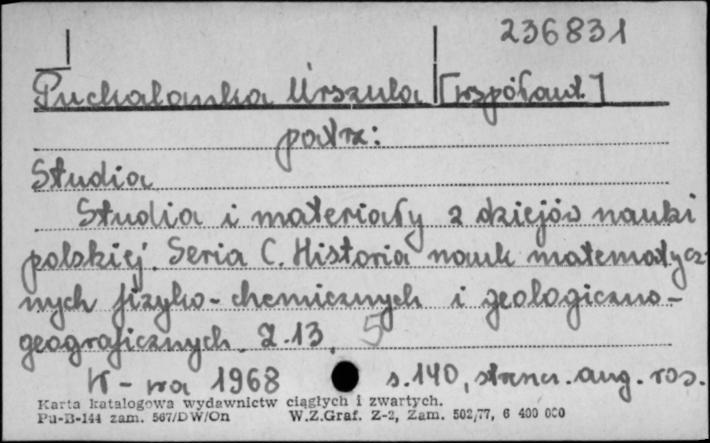 236831
Puchalanka Urszula [współaut.]
patrz:
Studia
Studia i materiały z dziejów nauki
polskiej. Seria C. Historia nauk matematycz-
nych fizyko-chemicznych i geologiczno-
geograficznych. Z.13. 5
W-wa 1968 s.140, streszcz. ang. ros.
Karta katalogowa wydawnictw ciągłych i zwartych.
Pu-B-144 zam. 567/DW/On W.Z.Graf. Z-2, Zam. 502/77, 6 400 000